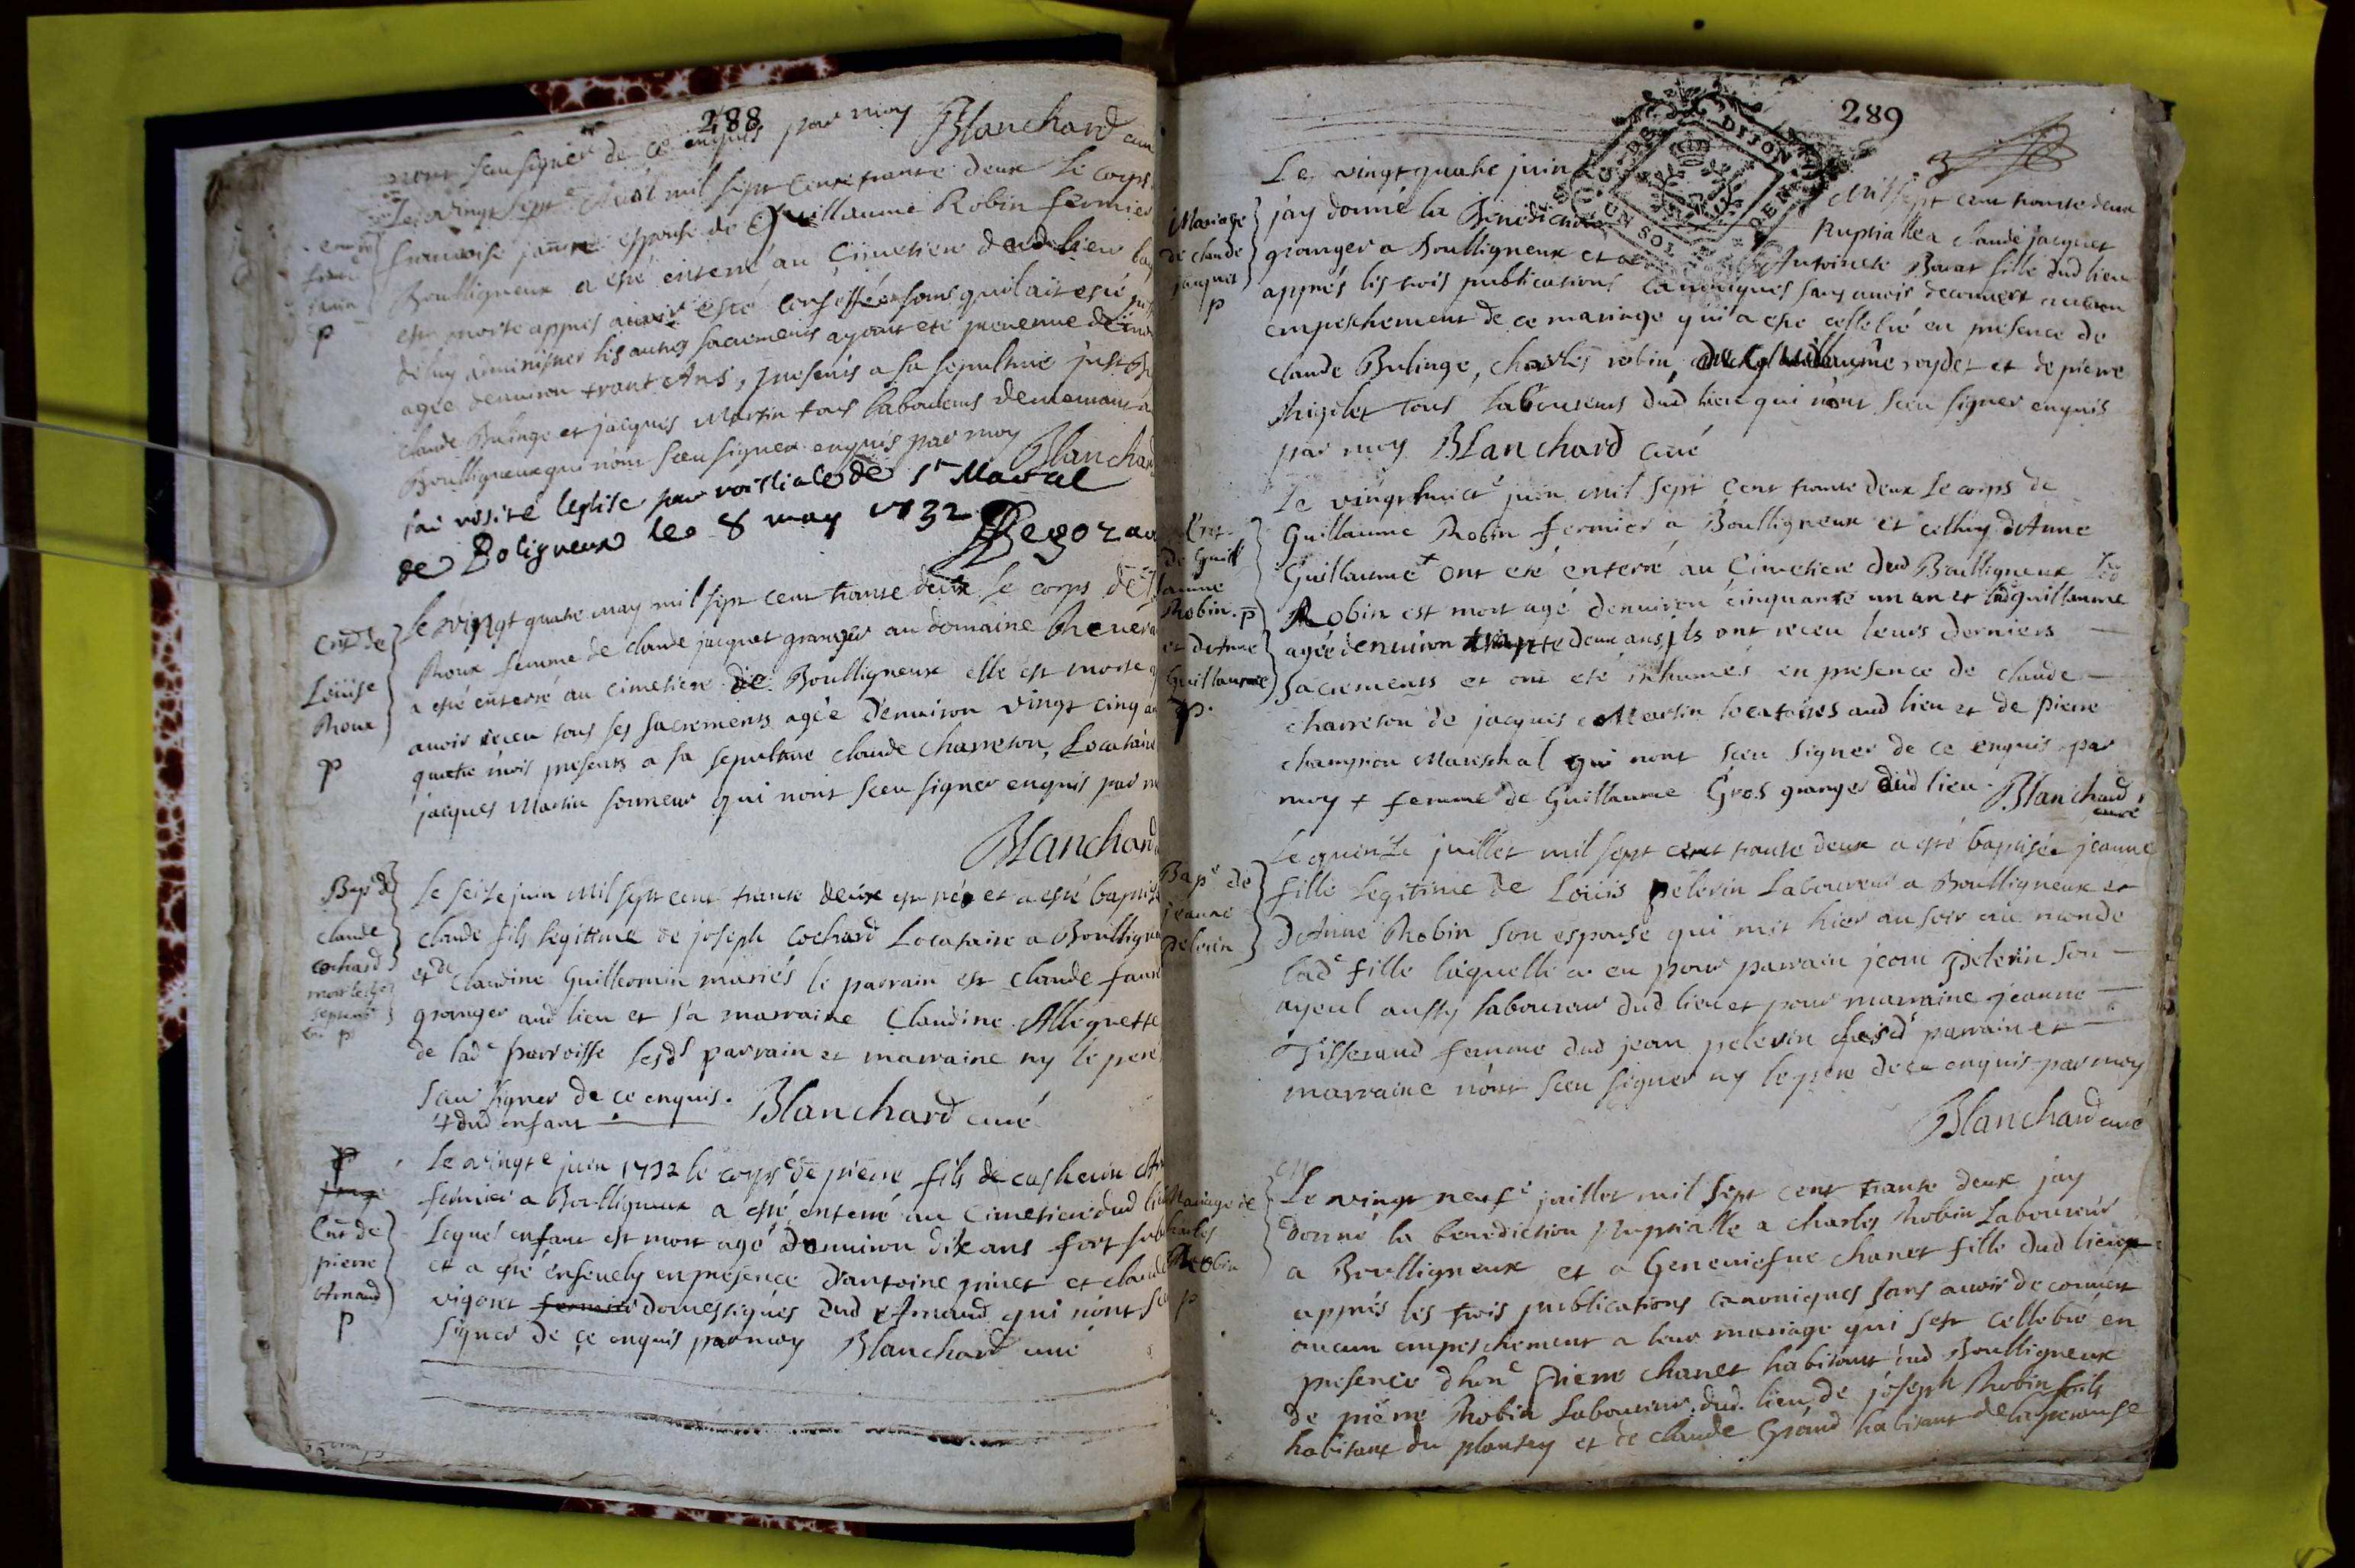 288
nont sceu signer de ce enquis par moy Blanchard curé
Le vingt sept avril mil sept cent trante deux le corps
francoise espouse de Guillaume Robin fermier
Boulligneux a esté enterré au Cimetiere dud lieu
est morte apprés avoir esté confessée sans quil ait esté
de luy administrer les autres sacrements ayant eté prevenue de
agée denuiron trant Ans, presents a sa sepulture
Claude Bulinge et jacques Martin tous laboureurs
Boulligneux qui nont sceu signer enquis par moy Blanchard
jai visité leglise parroissiale de St Marcel
de Boligneux le 8 may 1732
Ent de
Louise
Roux
p
Le vingt quatre may mil sept cent trante deux le corps de
Roux femme de claude jacquet granger au domaine
a esté enterré au cimetiere de Boulligneux elle est morte
avoir receu tous ses sacrements agée d'enuiron vingt cinq
quatre mois presents a sa sepulture claude charreton, Locataire
jacques Martin sonneur qui nont sceu signer enquis par
Blanchard
Bap de
claude
cochard
Le seize juin Mil sept cent trante deux est né et a esté baptisé
claude fils legitime de joseph cochard Locataire a Boulligneux
et de Claudine Guillermin mariés le parrain est claude
granger aud lieu et sa marraine Claudine Alleguette
de lade parroisse lesds parrain et marraine ny le pere
sceu signer de ce enquis. Blanchard curé
+ dud enfant
p
Ent de
pierre
Arnaud
p
Le vingte juin 1732 le corps de pierre fils de
fermier a Boulligneux a esté enterré au Cimetiere dud
Lequel enfant est mort agé denuiron dix ans
et a esté enseuely en presence d'antoine pinet et claude
vigout fermier domestiques dud Arnaud qui nont
signer de ce enquis par moy Blanchard curé
289
DIJON
UN SOL
Mariage
de claude
jacquet
p
Le vingt quatre juin mil sept cent trante deux
jay donné la Benediction Nuptialle a claude jacquet
granger a Boulligneux et a Antoinete fille dud lieu
apprés les trois publications canoniques sans auoir decouuert aucun
empeschement de ce mariage qui a esté cellebré en presence de
claude Bulinge, charles robin, reydet et de pierre
tous laboureurs dud lieu qui nont sceu signer enquis
par moy Blanchard curé
Ent
de Guill
aume
Robin. p
et d'Anne
Guillaume
p.
Le vingt huict juin mil sept cent trante deux le corps de
Guillaume Robin fermier a Boulligneux et celluy d'Anne
Guillaume + ont eté enterré au Cimetiere dud Boulligneux led
Robin est mort agé denuiron cinquante un an et lad guillaume
agée denuiron trante deux ans, ils ont receu leurs derniers
sacrements et ont eté inhumés en presence de claude
charreton de jacques Martin locataires aud lieu et de pierre
champion Mareschal qui nont sceu signer de ce enquis par
moy + femme de Guillaume Gros granger dud lieu. Blanchard
curé
Bape de
jeanne
Pelerin
Le quinze juillet mil sept cent trante deux a esté baptisée jeanne
fille Legitime de Louis pelerin Laboureur a Boulligneux et
d'Anne Robin son espouse qui mit hier au soir au monde
lade fille laquelle a eu pour parrain jean Pelerin son
ayeul aussy laboureur dud lieu et pour marraine jeanne
Tisserand femme dud jean pelerin lesds parrain et
marraine nont sceu signer ny le pere de ce enquis par moy
Blanchard curé
Mariage de
charles
Robin
p
Le vingt neufe juillet mil sept cent trante deux jay
donné la benediction Nuptialle a charles Robin Laboureur
a Boulligneux et a Geneuiefue chanet fille dud lieu
apprés les trois publications canoniques sans auoir decouuert
aucun empeschement a leur mariage qui sest cellebré en
presence d'hone Pierre chanet habitant dud Boulligneux
de pierre Robin Laboureur dud lieu, de joseph Robin fils
habitant du plantey et de claude Grand habitant de laperouse